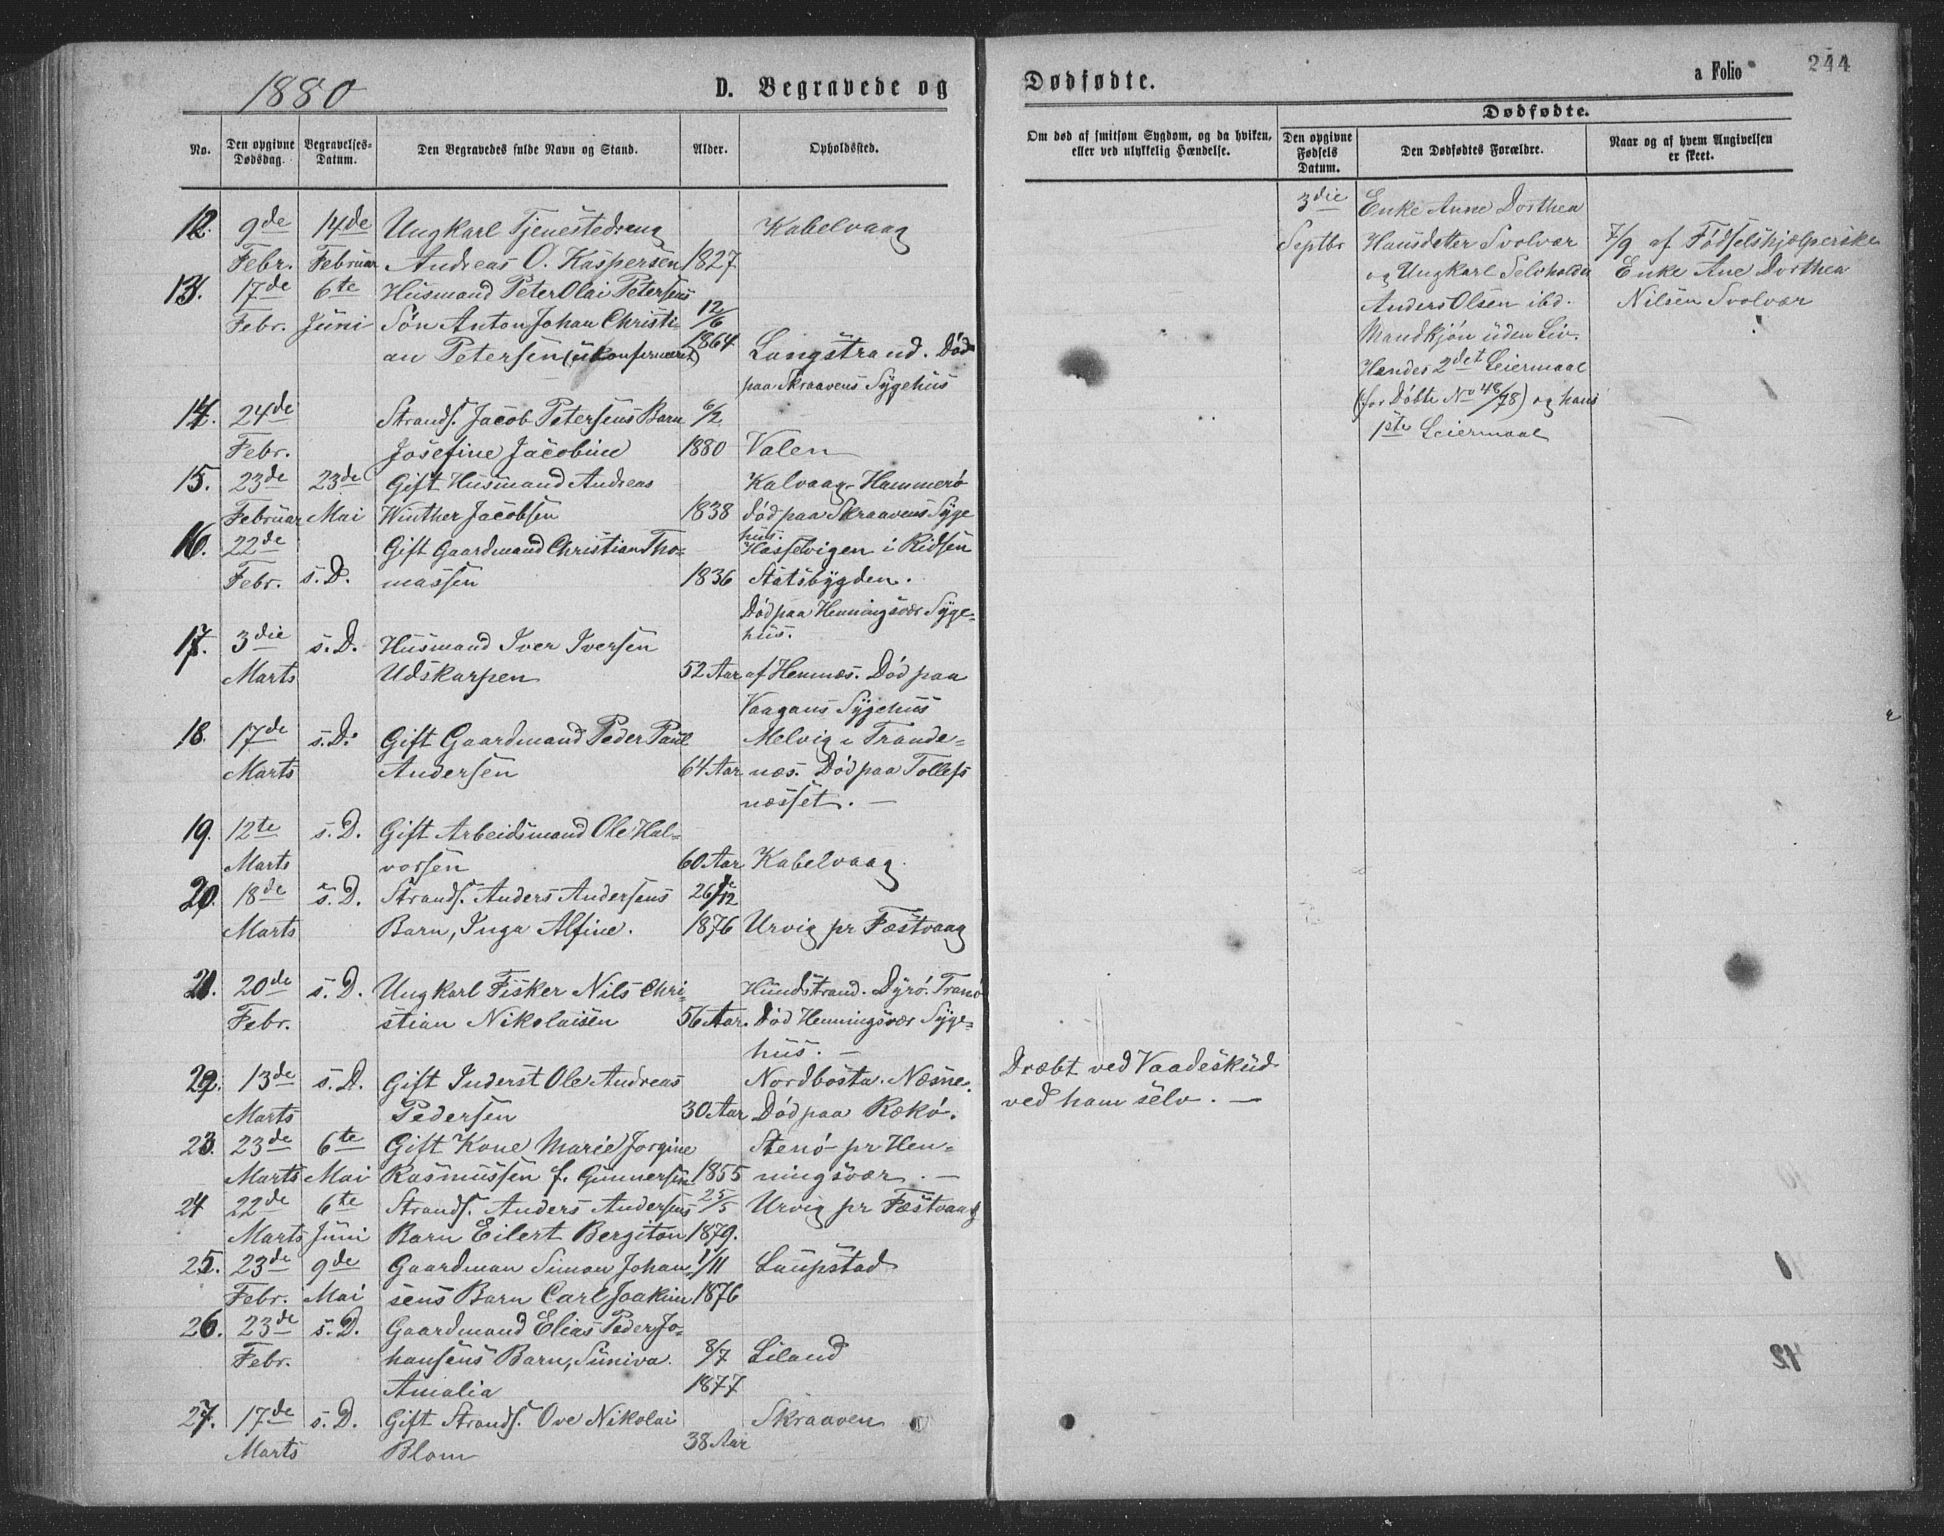 1880
D. Begravede og
No.
Den opgivne Dødsdag.
Begravelses-Datum.
Den Begravedes fulde Navn og Stand.
Alder.
Opholdssted.
12. 9de 14de Ungkarl Tjenestedreng Kabelvaag
Febr. Februar Andreas O. Kaspersen 1827
13. 17de 6te Husmand Peter Olai Petersens
Febr. Juni Søn Anton Johan Christi- 12/6
an Petersen (ukonfirmeret) 1864 Langstrand. Død
paa Skraavens Sygehus
14. 24de Strands. Jacob Petersens Barn 6/2
Febr. Josefine Jacobine 1880 Valen
15. 23de 23de Gift Husmand Andreas Kalvaag Hammerø
Februar Mai Winther Jacobsen 1838 død paa Skraavens Syge
hus.
16. 22de Gift Gaardmand Christian Tho- Hasselvigen i Ridsen
Febr. s. D. massen 1836 Statsbygden.
Død paa Henningsvær Syge-
hus.
17. 3die s. D. Husmand Iver Iversen
Marts Udskarpen 52 Aar af Hemnæs. Død paa
Vaagans Sygehus
18. 17de s. D. Gift Gaardmand Peder Paul Melvig i Trande-
Marts Andersen 64 Aar næs. Død paa Tollefs
næsset. —
19. 12te s. D. Gift Arbeidsmand Ole Hal-
Marts vorsen 60 Aar Kabelvaag.
20. 18de s. D. Strands. Anders Andersens 26/12
Marts Barn, Inga Alfine. 1876 Urvig pr Festvaag
21. 20de s. D. Ungkarl Fisker Nils Chri- Hundstrand. Dyrø. Tranø
Febr. stian Nikolaisen 56 Aar. Død Henningsvær Syge-
hus. —
22. 13de s. D. Gift Inderst Ole Andreas Nordbosta. Næsne.
Marts Pedersen 30 Aar Død paa Rækø.
23. 23de 6te Gift Kone Marie Jorgine Stenø pr Hen-
Marts Mai Rasmussen f. Gunnersen 1855 ningsvær. —
24 22de 6te Strands. Anders Andersens 25/5 Urvig pr Festvaag
Marts Juni Barn Eilert Bergiton 1879.
25. 23de 9de Gaardman Simon Johan 1/11 Laupstad
Febr. Mai sens Barn Carl Joakim 1876
26. 23de s. D. Gaardmand Elias Peder Jo-
Febr. hansens Barn, Suniva 8/7 Liland
Amalia 1877
27. 17de s. D. Gift Strands. Ove Nikolai Skraaven
Marts Blom 38 Aar
Dødfødte.
a Folio 244
Om død af smitsom Sygdom, og da hvilken, eller ved ulykkelig Hændelse.
Dødfødte.
Den opgivne Fødsels Datum.
Den Dødfødtes Forældre.
Naar og af hvem Angivelsen er skeet.
3die Enke Anne Dorthea
Septbr Hansdatter Svolvær 7/9 af Fødselshjælperske
og Ungkarl Selvholdn Enke Ane Dorthea
Anders Olsen ibd. Nilsen Svolvær
Mandkjøn uden Liv.
Hendes 2det Leiermaal
(for Døbte No 48/78) og hans
1ste Leiermaal
Dræbt ved Vaadeskud
ved ham selv. —